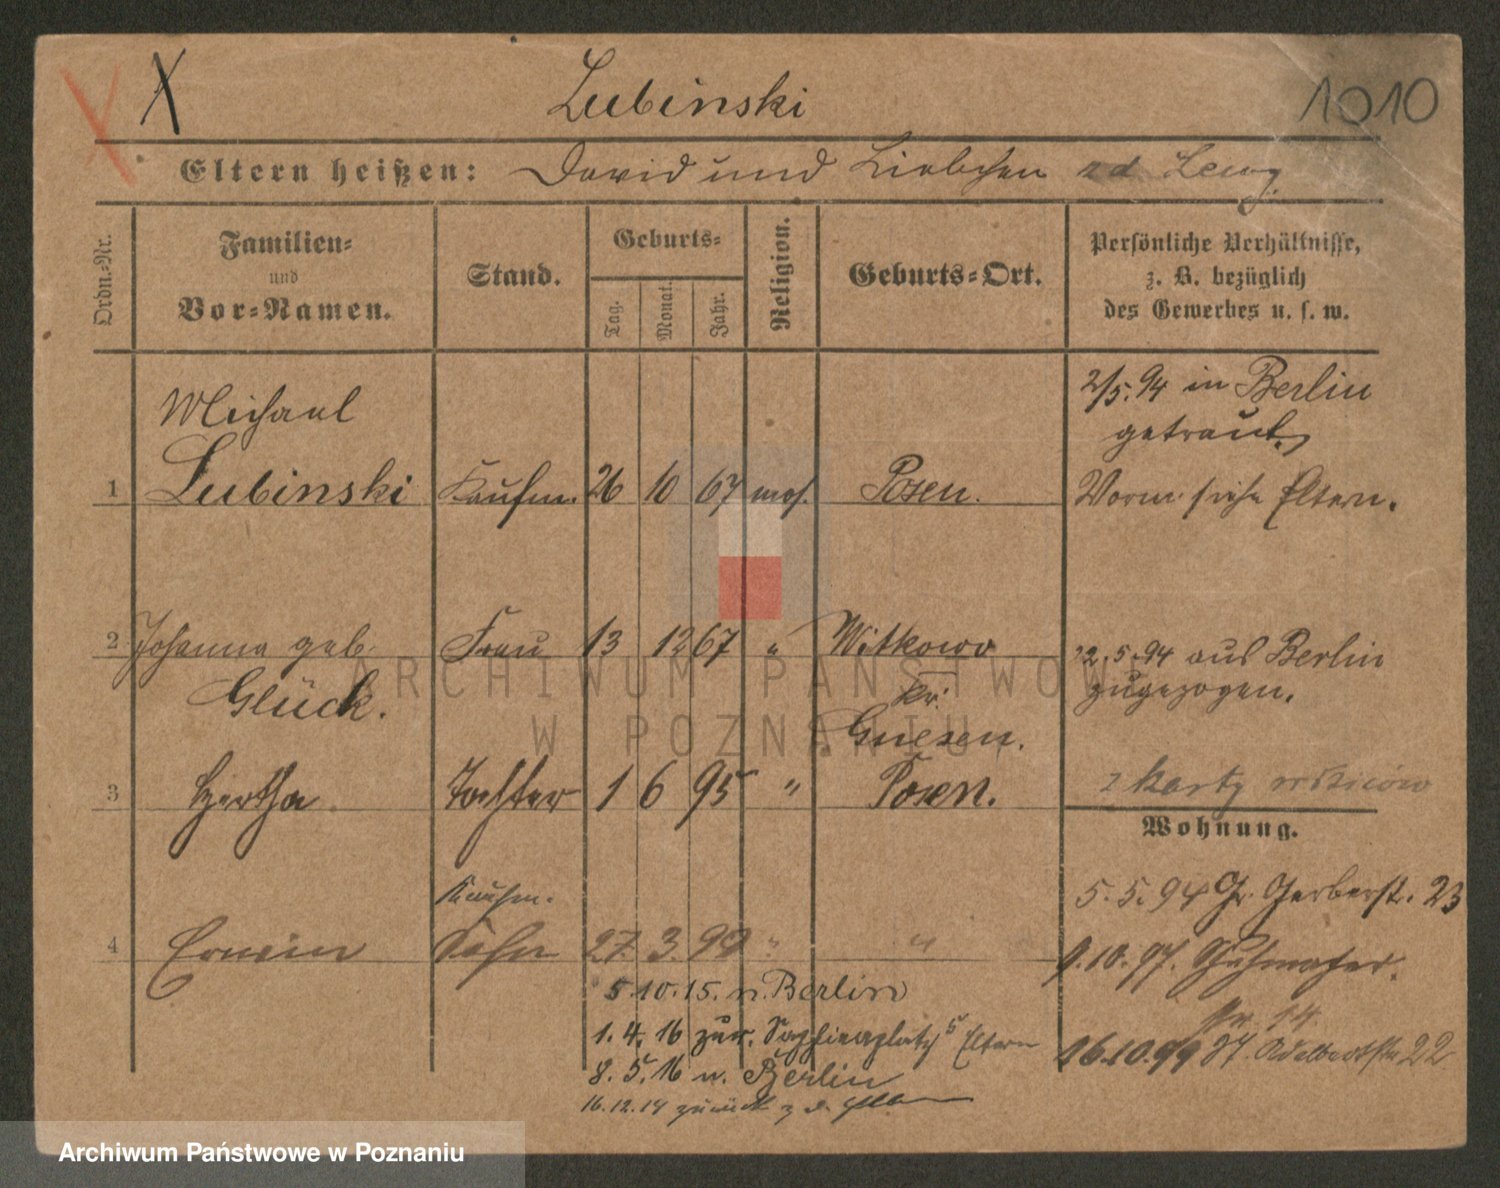 X X
Lubinski
1010
Eltern heißen: David und Liebchen z d Lewy
Ordn.-Nr.
Familien-
und
Vor-Namen.
Stand.
Geburts-
Tag.
Monat.
Jahr.
Religion.
Geburts-Ort.
Persönliche Verhältnisse,
z. B. bezüglich
des Gewerbes u. s. w.
2/5. 94 in Berlin
getraut.
Michael
1 Lubinski Kaufm. 26 10 67 mos. Posen. Vorm. siehe Eltern.
2 Johanna geb. Frau 13 12 67 " Witkowo 22.5.94 aus Berlin
Glück. Kr. zugezogen.
Gnesen.
3 Hertha Tochter 1 6 95 " Posen. z karty rodziców
Wohnung.
5.5.94 Gr. Gerberstr. 23
Kaufm.
4 Erwin Sohn 27. 3. 99 " "
9.10.97. Schuhmacher-
str. 14
16.10.99 St. Adalbertstr 22
5.10.15. n. Berlin
1.4.16 zur. Sapiehaplatz 5 Eltern
8.5.16 n. Berlin
16.12.19 zurück z. d. Eltern
ARCHIWUM PAŃSTWOWE
W POZNANIU
Archiwum Państwowe w Poznaniu